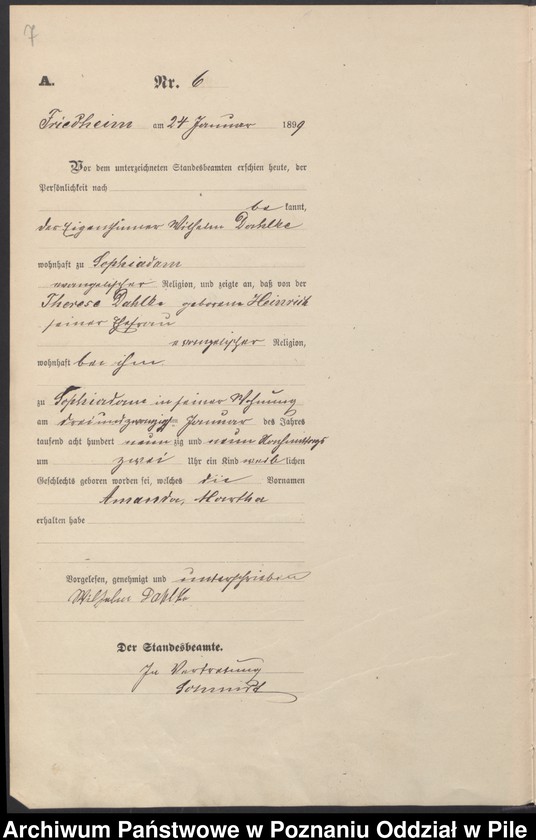 7
A. Nr. 6
Friedheim am 24 Januar 1899
Vor dem unterzeichneten Standesbeamten erschien heute, der
Persönlichkeit nach
be kannt,
der Eigenthümer Wilhelm Dahlke
wohnhaft zu Sophiadam
evangelischer Religion, und zeigte an, daß von der
Therese Dahlke geborene Heinrich
seiner Ehefrau
evangelischer Religion,
wohnhaft bei ihm
zu Sophiadam in seiner Wohnung
am dreiundzwanzigsten Januar des Jahres
tausend acht hundert neun zig und neun Nachmittags
um zwei Uhr ein Kind weib lichen
Geschlechts geboren worden sei, welches die Vornamen
Amanda, Martha
erhalten habe
Vorgelesen, genehmigt und unterschrieben
Wilhelm Dahlke
Der Standesbeamte.
In Vertretung
Schmidt
Archiwum Państwowe w Poznaniu Oddział w Pile